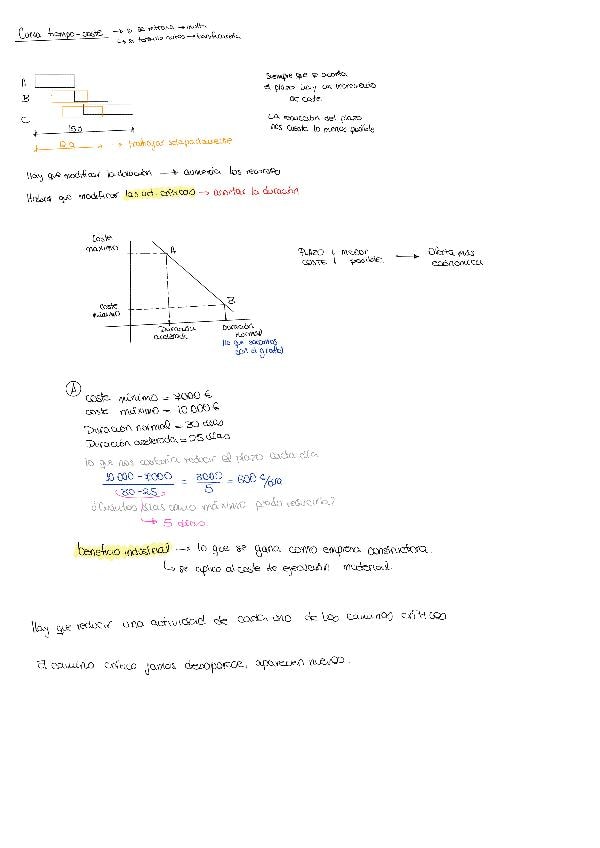 Curva tiempo-coste → si se retrasa → multa
↳ si termino antes → beneficencia
A
B
C
150
120 → trabajar solapadamente
Siempre que se acorta
el plazo hay un incremento
de coste.
La reducción del plazo
nos cueste lo menos posible
Hay que modificar la duración → aumentar los recursos
Habrá que modificar las act. críticas → acortar la duración
Coste
máximo
A
Coste
mínimo
B
Duración
acelerada
Duración
normal
(lo que sacamos
con el gantt)
PLAZO ↓ menor
COSTE ↓ posible. → Oferta más
económica
A
Coste mínimo = 7000 €
Coste máximo = 10 000 €
Duración normal = 30 días
Duración acelerada = 25 días
lo que nos costaría reducir el plazo cada día
10 000 - 7000 / 30 - 25 = 3000 / 5 = 600 €/día
¿Cuántos días como máximo puedo reducirla?
↳ 5 días
beneficio industrial → lo que se gana como empresa constructora
↳ se aplica al coste de ejecución material.
Hay que reducir una actividad de cada uno de los caminos críticos
El camino crítico jamás desaparece, aparecen nuevos.